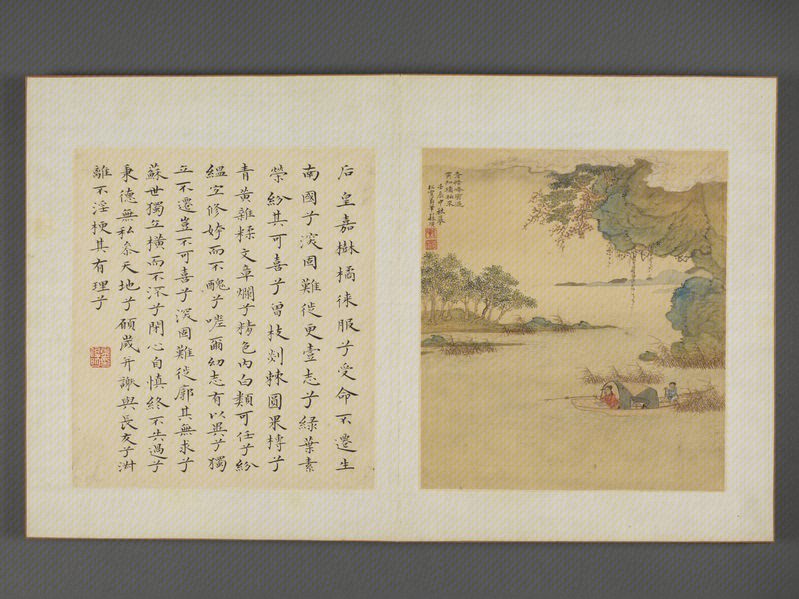 后皇嘉樹橘徠服兮受命不遷生
南國兮深固難徙更壹志兮綠葉素
榮紛其可喜兮曾枝剡棘圓果摶兮
青黃雜糅文章爛兮精色內白類可任兮紛
緼宜修姱而不醜兮嗟爾幼志有以異兮獨
立不遷豈不可喜兮深固難徙廓其無求兮
蘇世獨立橫而不流兮閉心自慎終不失過兮
秉德無私參天地兮願歲并謝與長友兮淑
離不淫梗其有理兮
青惜峰巒過
黃知橘柚來
壬辰中秋摹